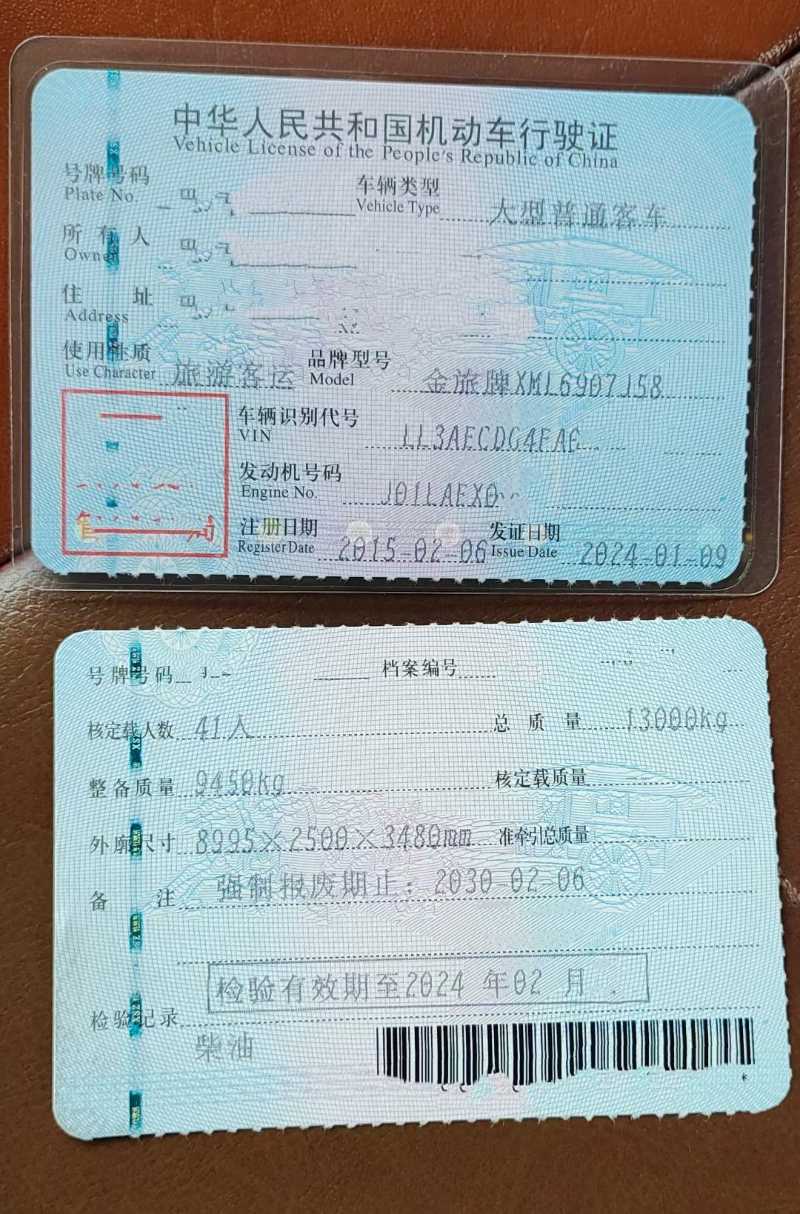 中华人民共和国机动车行驶证
Vehicle License of the People's Republic of China
号牌号码
Plate No.
车辆类型
Vehicle Type
大型普通客车
所有人
Owner
住址
Address
使用性质
Use Character
旅游客运
品牌型号
Model
金旅牌XML6907J58
车辆识别代号
VIN
LL3AECDG4FA
发动机号码
Engine No.
J01LAEX0
注册日期
Register Date
2015-02-06
发证日期
Issue Date
2024-01-09
号牌号码
档案编号
核定载人数 41人
总质量 13000kg
整备质量 9450kg
核定载质量
外廓尺寸 8995×2500×3480mm
准牵引总质量
备注 强制报废期止：2030-02-06
检验有效期至2024 年02 月
检验记录
柴油